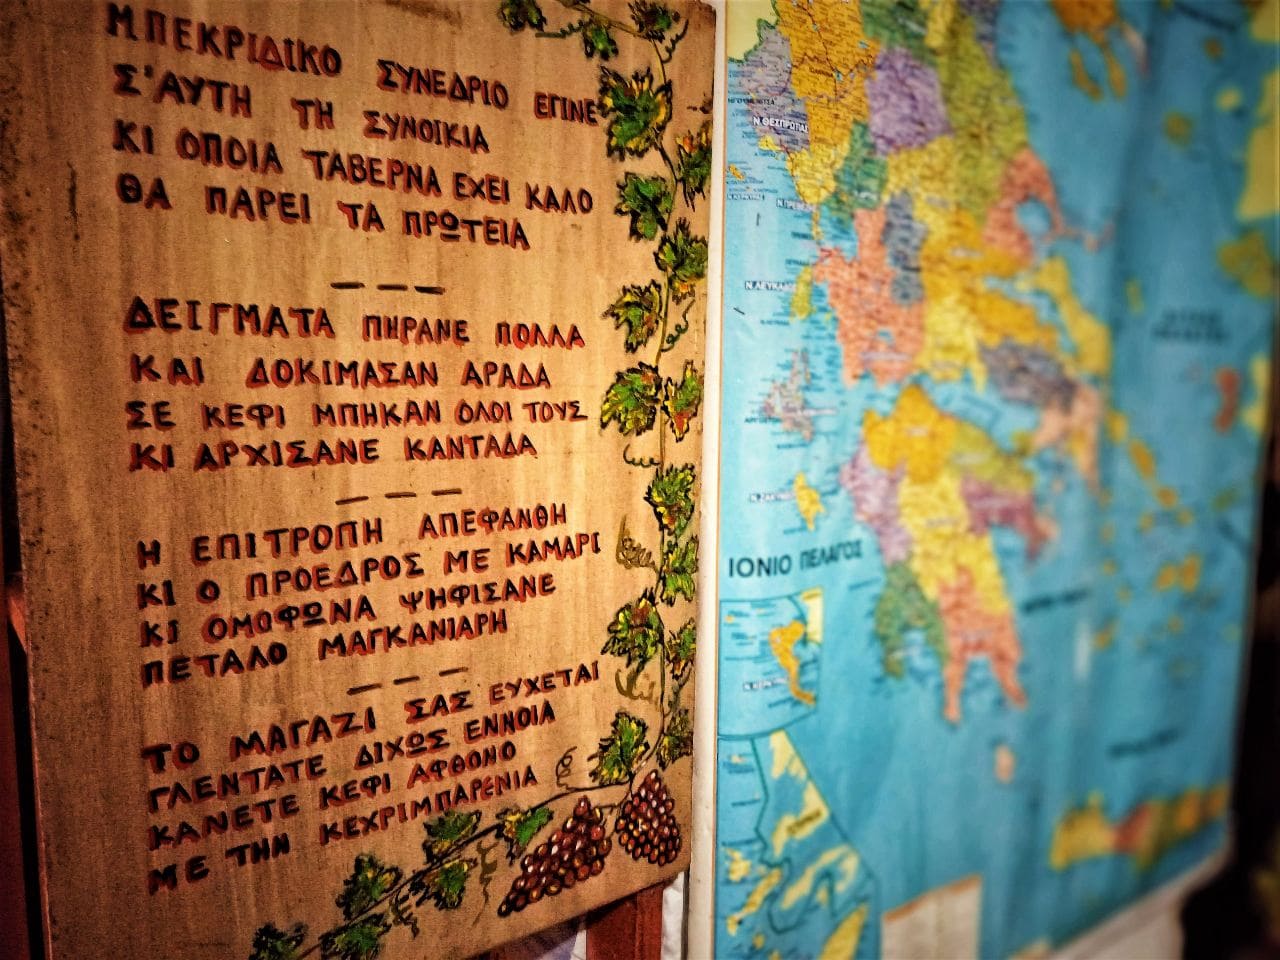 ΜΠΕΚΡΙΔΙΚΟ ΣΥΝΕΔΡΙΟ ΕΓΙΝΕ
Σ'ΑΥΤΗ ΤΗ ΣΥΝΟΙΚΙΑ
ΚΙ ΟΠΟΙΑ ΤΑΒΕΡΝΑ ΕΧΕΙ ΚΑΛΟ
ΘΑ ΠΑΡΕΙ ΤΑ ΠΡΩΤΕΙΑ
ΔΕΙΓΜΑΤΑ ΠΗΡΑΝΕ ΠΟΛΛΑ
ΚΑΙ ΔΟΚΙΜΑΣΑΝ ΑΡΑΔΑ
ΣΕ ΚΕΦΙ ΜΠΗΚΑΝ ΟΛΟΙ ΤΟΥΣ
ΚΙ ΑΡΧΙΣΑΝΕ ΚΑΝΤΑΔΑ
Η ΕΠΙΤΡΟΠΗ ΑΠΕΦΑΝΘΗ
ΚΙ Ο ΠΡΟΕΔΡΟΣ ΜΕ ΚΑΜΑΡΙ
ΚΙ ΟΜΟΦΩΝΑ ΨΗΦΙΣΑΝΕ
ΠΕΤΑΛΟ ΜΑΓΚΑΝΙΑΡΗ
ΤΟ ΜΑΓΑΖΙ ΣΑΣ ΕΥΧΕΤΑΙ
ΓΛΕΝΤΑΤΕ ΔΙΧΩΣ ΕΝΝΟΙΑ
ΚΑΝΕΤΕ ΚΕΦΙ ΑΦΘΟΝΟ
ΜΕ ΤΗΝ ΚΕΧΡΙΜΠΑΡΕΝΙΑ
Ν. ΘΕΣΠΡΩΤΙΑΣ
Ν. ΛΕΥΚΑΔΟΣ
ΙΟΝΙΟ ΠΕΛΑΓΟΣ